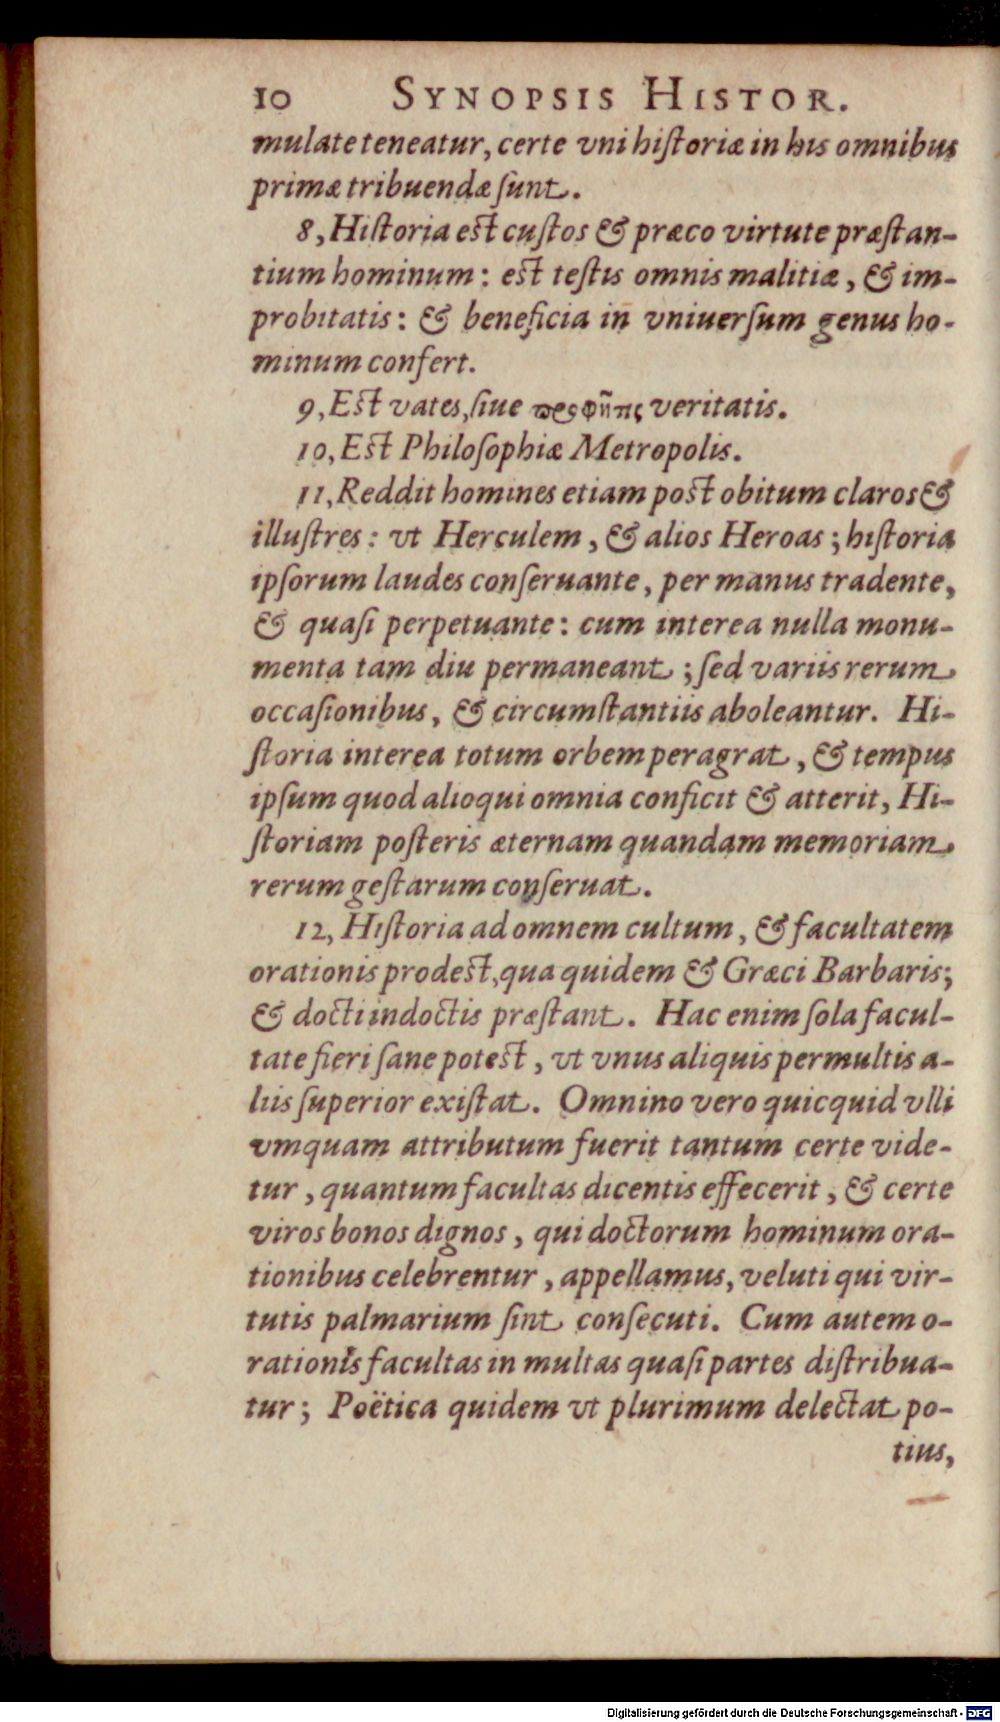 10 SYNOPSIS HISTOR.
mulate teneatur, certe vni hiſtoriæ in his omnibus
primæ tribuendæ ſunt.
8, Hiſtoria eſt cuſtos & præco virtute præſtan-
tium hominum: eſt teſtis omnis malitiæ, & im-
probitatis: & beneficia in vniuerſum genus ho-
minum confert.
9, Eſt vates, ſiue veritatis.
10, Eſt Philoſophiæ Metropolis.
11, Reddit homines etiam poſt obitum claros &
illuſtres: vt Herculem, & alios Heroas; hiſtoria
ipſorum laudes conſeruante, per manus tradente,
& quaſi perpetuante: cum interea nulla monu-
menta tam diu permaneant; ſed variis rerum
occaſionibus, & circumſtantiis aboleantur. Hi-
ſtoria interea totum orbem peragrat, & tempus
ipſum quod alioqui omnia conficit & atterit, Hi-
ſtoriam poſteris æternam quandam memoriam
rerum geſtarum conſeruat.
12, Hiſtoria ad omnem cultum, & facultatem
orationis prodeſt, qua quidem & Græci Barbaris;
& docti indoctis præſtant. Hac enim ſola facul-
tate fieri ſane poteſt, vt vnus aliquis permultis a-
liis ſuperior exiſtat. Omnino vero quicquid vlli
vmquam attributum fuerit tantum certe vide-
tur, quantum facultas dicentis effecerit, & certe
viros bonos dignos, qui doctorum hominum ora-
tionibus celebrentur, appellamus, veluti qui vir-
tutis palmarium ſint conſecuti. Cum autem o-
rationis facultas in multas quaſi partes diſtribua-
tur; Poëtica quidem vt plurimum delectat po-
tius,
Digitalisierung gefördert durch die Deutsche Forschungsgemeinschaft - DFG